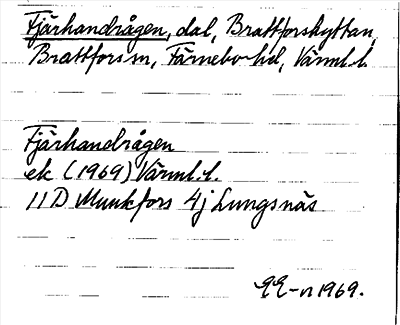 Fjärhandrågen, dal, Brattforshyttan,
Brattfors sn, Färnebo hd, Värml. l.
Fjärhandrågen
ek (1969) Värml. l.
11D Munkfors 4j Lungsnäs
1969.